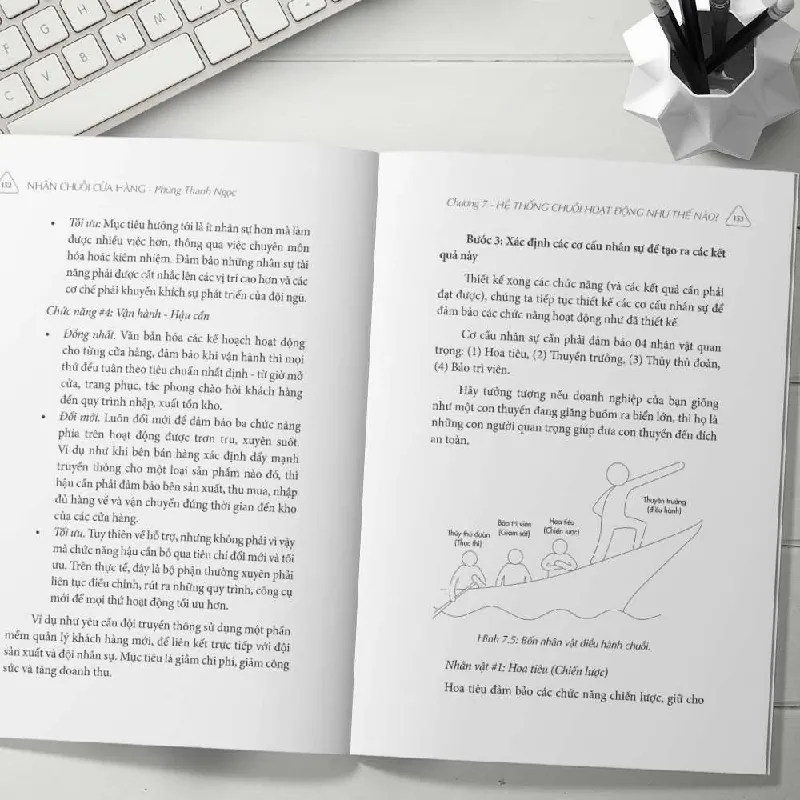 152
NHÂN CHUỖI CỬA HÀNG - Phùng Thanh Ngọc
• Tối ưu: Mục tiêu hướng tới là ít nhân sự hơn mà làm
được nhiều việc hơn, thông qua việc chuyên môn
hóa hoặc kiêm nhiệm. Đảm bảo những nhân sự tài
năng phải được cất nhắc lên các vị trí cao hơn và các
cơ chế phải khuyến khích sự phát triển của đội ngũ.
Chức năng #4: Vận hành - Hậu cần
• Đồng nhất. Văn bản hóa các kế hoạch hoạt động
cho từng cửa hàng, đảm bảo khi vận hành thì mọi
thứ đều tuân theo tiêu chuẩn nhất định - từ giờ mở
cửa, trang phục, tác phong chào hỏi khách hàng
đến quy trình nhập, xuất tồn kho.
• Đổi mới. Luôn đổi mới để đảm bảo ba chức năng
phía trên hoạt động được trơn tru, xuyên suốt.
Ví dụ như khi bên bán hàng xác định đẩy mạnh
truyền thông cho một loại sản phẩm nào đó, thì
hậu cần phải đảm bảo bên sản xuất, thu mua, nhập
đủ hàng về và vận chuyển đúng thời gian đến kho
của các cửa hàng.
• Tối ưu. Tuy thiên về hỗ trợ, nhưng không phải vì vậy
mà chức năng hậu cần bỏ qua tiêu chí đổi mới và tối
ưu. Trên thực tế, đây là bộ phận thường xuyên phải
liên tục điều chỉnh, rút ra những quy trình, công cụ
mới để mọi thứ hoạt động tối ưu hơn.
Ví dụ như yêu cầu đội truyền thông sử dụng một phần
mềm quản lý khách hàng mới, để liên kết trực tiếp với đội
sản xuất và đội nhân sự. Mục tiêu là giảm chi phí, giảm công
sức và tăng doanh thu.
Chương 7 - HỆ THỐNG CHUỖI HOẠT ĐỘNG NHƯ THẾ NÀO?
153
Bước 3: Xác định các cơ cấu nhân sự để tạo ra các kết
quả này
Thiết kế xong các chức năng (và các kết quả cần phải
đạt được), chúng ta tiếp tục thiết kế các cơ cấu nhân sự để
đảm bảo các chức năng hoạt động như đã thiết kế.
Cơ cấu nhân sự cần phải đảm bảo 04 nhân vật quan
trọng: (1) Hoa tiêu, (2) Thuyền trưởng, (3) Thủy thủ đoàn,
(4) Bảo trì viên.
Hãy tưởng tượng nếu doanh nghiệp của bạn giống
như một con thuyền đang giăng buồm ra biển lớn, thì họ là
những con người quan trọng giúp đưa con thuyền đến đích
an toàn.
Thuyền trưởng
(điều hành)
Hoa tiêu
(Chiến lược)
Bảo trì viên
(Giám sát)
Thủy thủ đoàn
(Thực thi)
Hình 7.5: Bốn nhân vật điều hành chuỗi.
Nhân vật #1: Hoa tiêu (Chiến lược)
Hoa tiêu đảm bảo các chức năng chiến lược, giữ cho